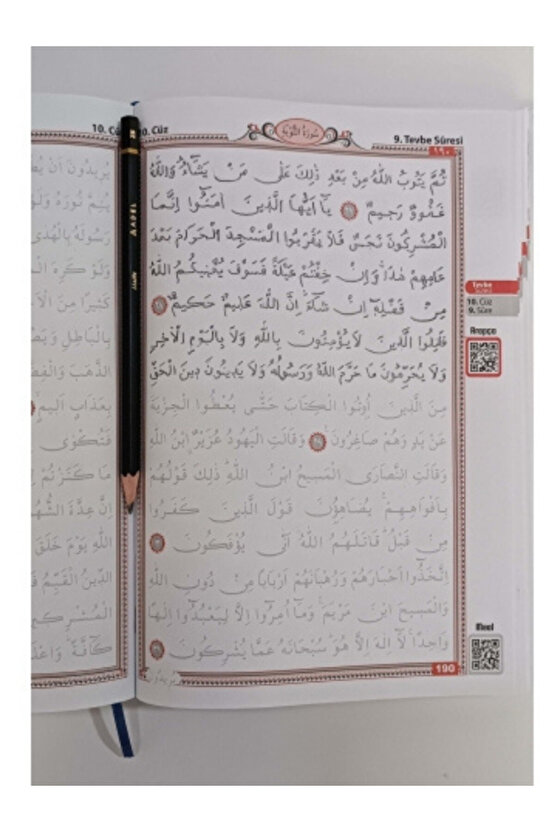 10. Cüz
سورة التوبة
9. Tevbe Sûresi
١٩٠
ثُمَّ يَتُوبُ اللّٰهُ مِنْ بَعْدِ ذٰلِكَ عَلٰى مَنْ يَشَٓاءُۜ وَاللّٰهُ
غَفُورٌ رَحِيمٌ يَٓا اَيُّهَا الَّذِينَ اٰمَنُٓوا اِنَّمَا
الْمُشْرِكُونَ نَجَسٌ فَلَا يَقْرَبُوا الْمَسْجِدَ الْحَرَامَ بَعْدَ
عَامِهِمْ هٰذَاۚ وَاِنْ خِفْتُمْ عَيْلَةً فَسَوْفَ يُغْنِيكُمُ اللّٰهُ
مِنْ فَضْلِهٖٓ اِنْ شَٓاءَۜ اِنَّ اللّٰهَ عَلِيمٌ حَكِيمٌ
قَاتِلُوا الَّذِينَ لَا يُؤْمِنُونَ بِاللّٰهِ وَلَا بِالْيَوْمِ الْاٰخِرِ
وَلَا يُحَرِّمُونَ مَا حَرَّمَ اللّٰهُ وَرَسُولُهُ وَلَا يَدِينُونَ دِينَ الْحَقِّ
مِنَ الَّذِينَ اُوتُوا الْكِتَابَ حَتّٰى يُعْطُوا الْجِزْيَةَ
عَنْ يَدٍ وَهُمْ صَاغِرُونَ وَقَالَتِ الْيَهُودُ عُزَيْرٌۨ ابْنُ اللّٰهِ
وَقَالَتِ النَّصَارَى الْمَسِيحُ ابْنُ اللّٰهِۜ ذٰلِكَ قَوْلُهُمْ
بِاَفْوَاهِهِمْۚ يُضَاهِؤُ۫نَ قَوْلَ الَّذِينَ كَفَرُوا
مِنْ قَبْلُۜ قَاتَلَهُمُ اللّٰهُۘ اَنّٰى يُؤْفَكُونَ
اِتَّخَذُٓوا اَحْبَارَهُمْ وَرُهْبَانَهُمْ اَرْبَابًا مِنْ دُونِ اللّٰهِ
وَالْمَسِيحَ ابْنَ مَرْيَمَۚ وَمَٓا اُمِرُٓوا اِلَّا لِيَعْبُدُٓوا اِلٰهًا
وَاحِدًاۚ لَٓا اِلٰهَ اِلَّا هُوَۜ سُبْحَانَهُ عَمَّا يُشْرِكُونَ
190
يُرِيدُونَ
Tevbe
10. Cüz
9. Sûre
Arapça
Meal
10. C
يُرِيدُونَ اَنْ
نُورَهُ
رَسُولَهُ بِالْهُدٰى
وَلَوْ كَرِهَ
كَثِيرًا مِنَ
بِالْبَاطِلِ
الذَّهَبَ
بِعَذَابٍ اَلِيمٍ
فَتُكْوٰى
مَا كَنَزْتُمْ
اِنَّ عِدَّةَ
اللّٰهِ يَوْمَ خَلَقَ
الدِّينُ الْقَيِّمُ
الْمُشْرِكِينَ
كَٓافَّةً